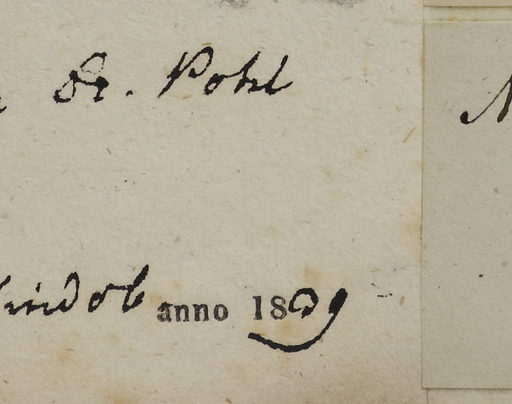 Dr. Pohl
Vindob anno 1839